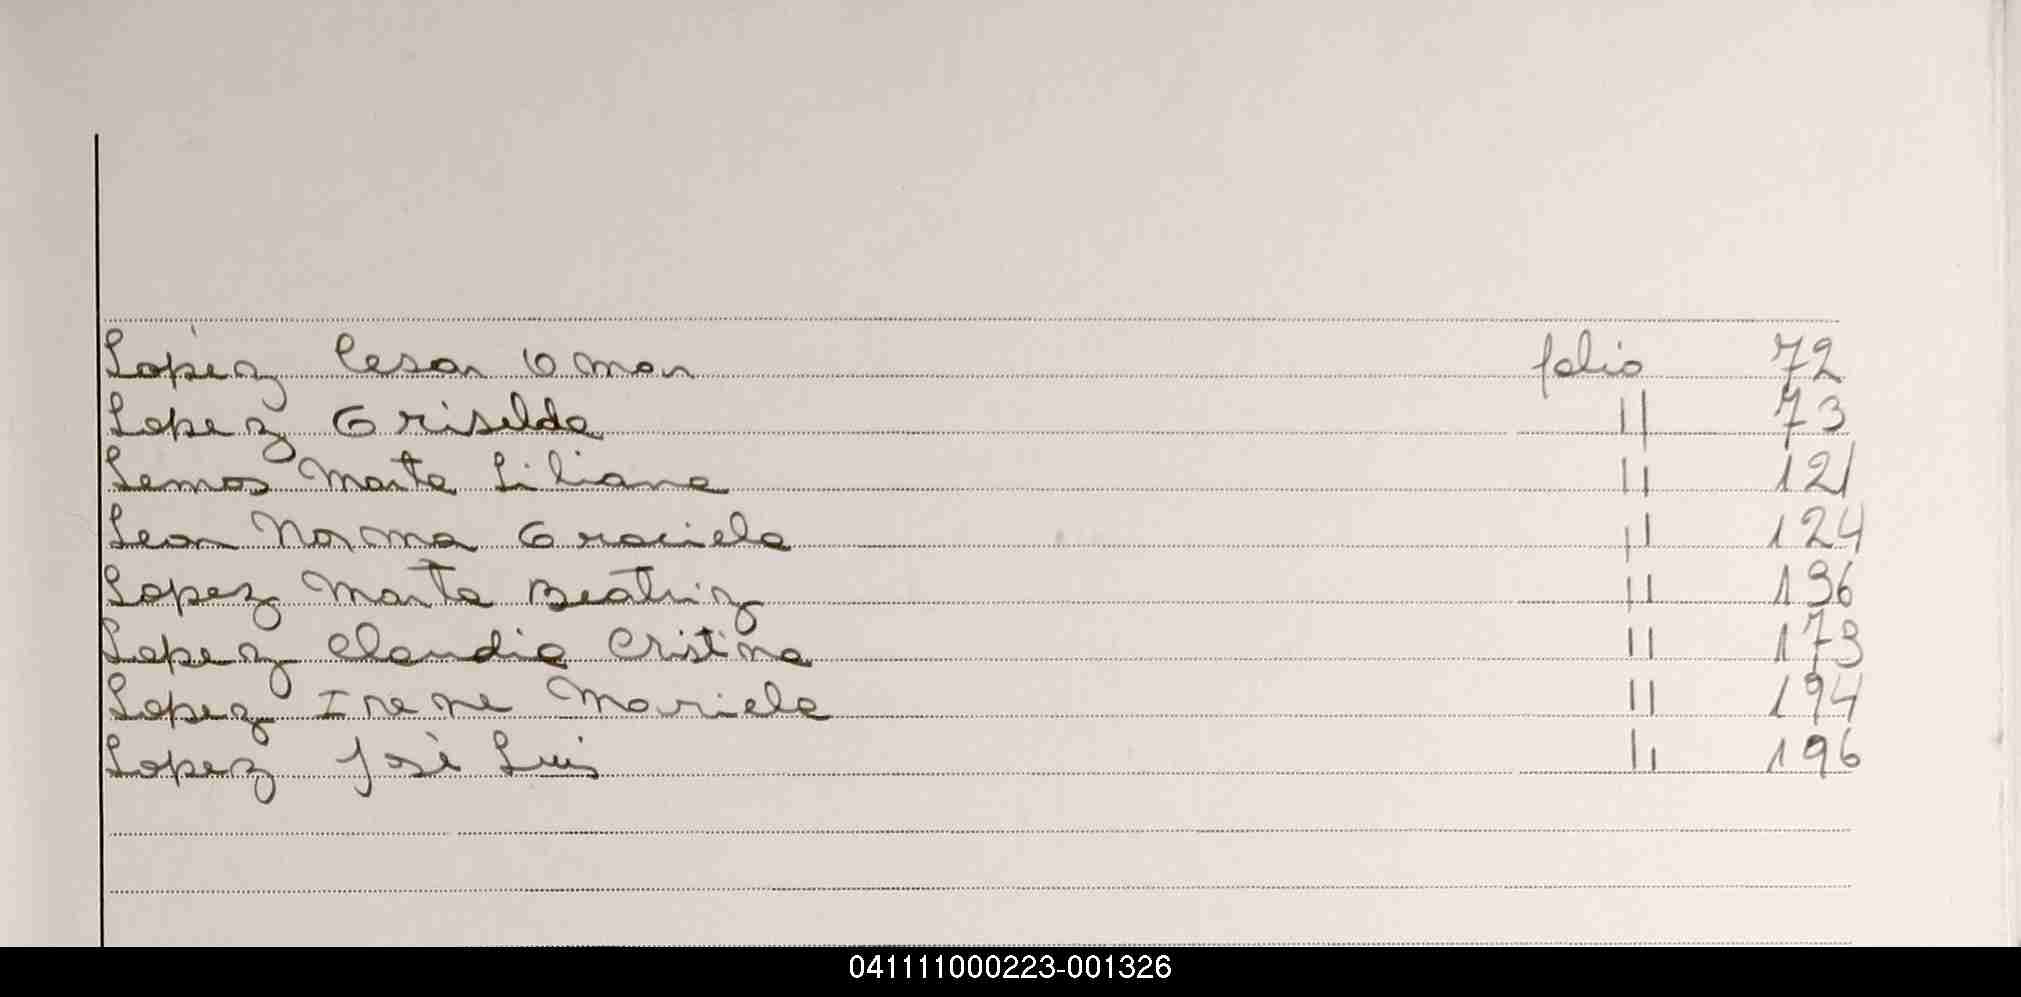 Lopéz Cesar Omar folio 72
Lopez Griselda " 73
Lemos Marta Liliana " 121
Leon Norma Graciela " 124
Lopez Marta Beatriz " 136
Lopez Claudia Cristina " 173
Lopez Irene Mariela " 194
Lopez José Luis " 196
041111000223-001326